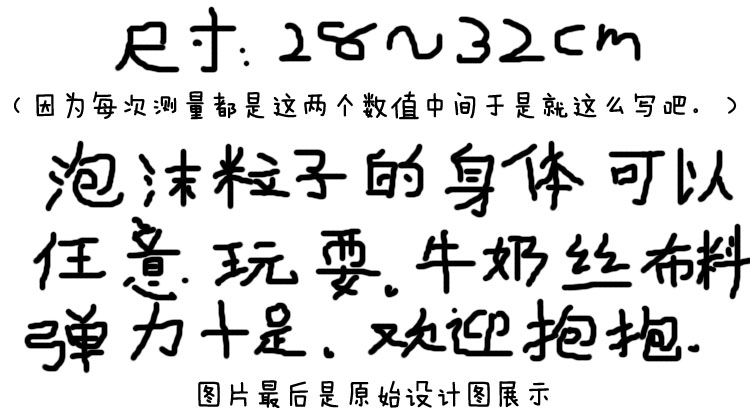 尺寸:28~32cm
(因为每次测量都是这两个数值中间于是就这么写吧.)
泡沫粒子的身体可以
任意玩耍.牛奶丝布料
弹力十足.欢迎抱抱.
图片最后是原始设计图展示